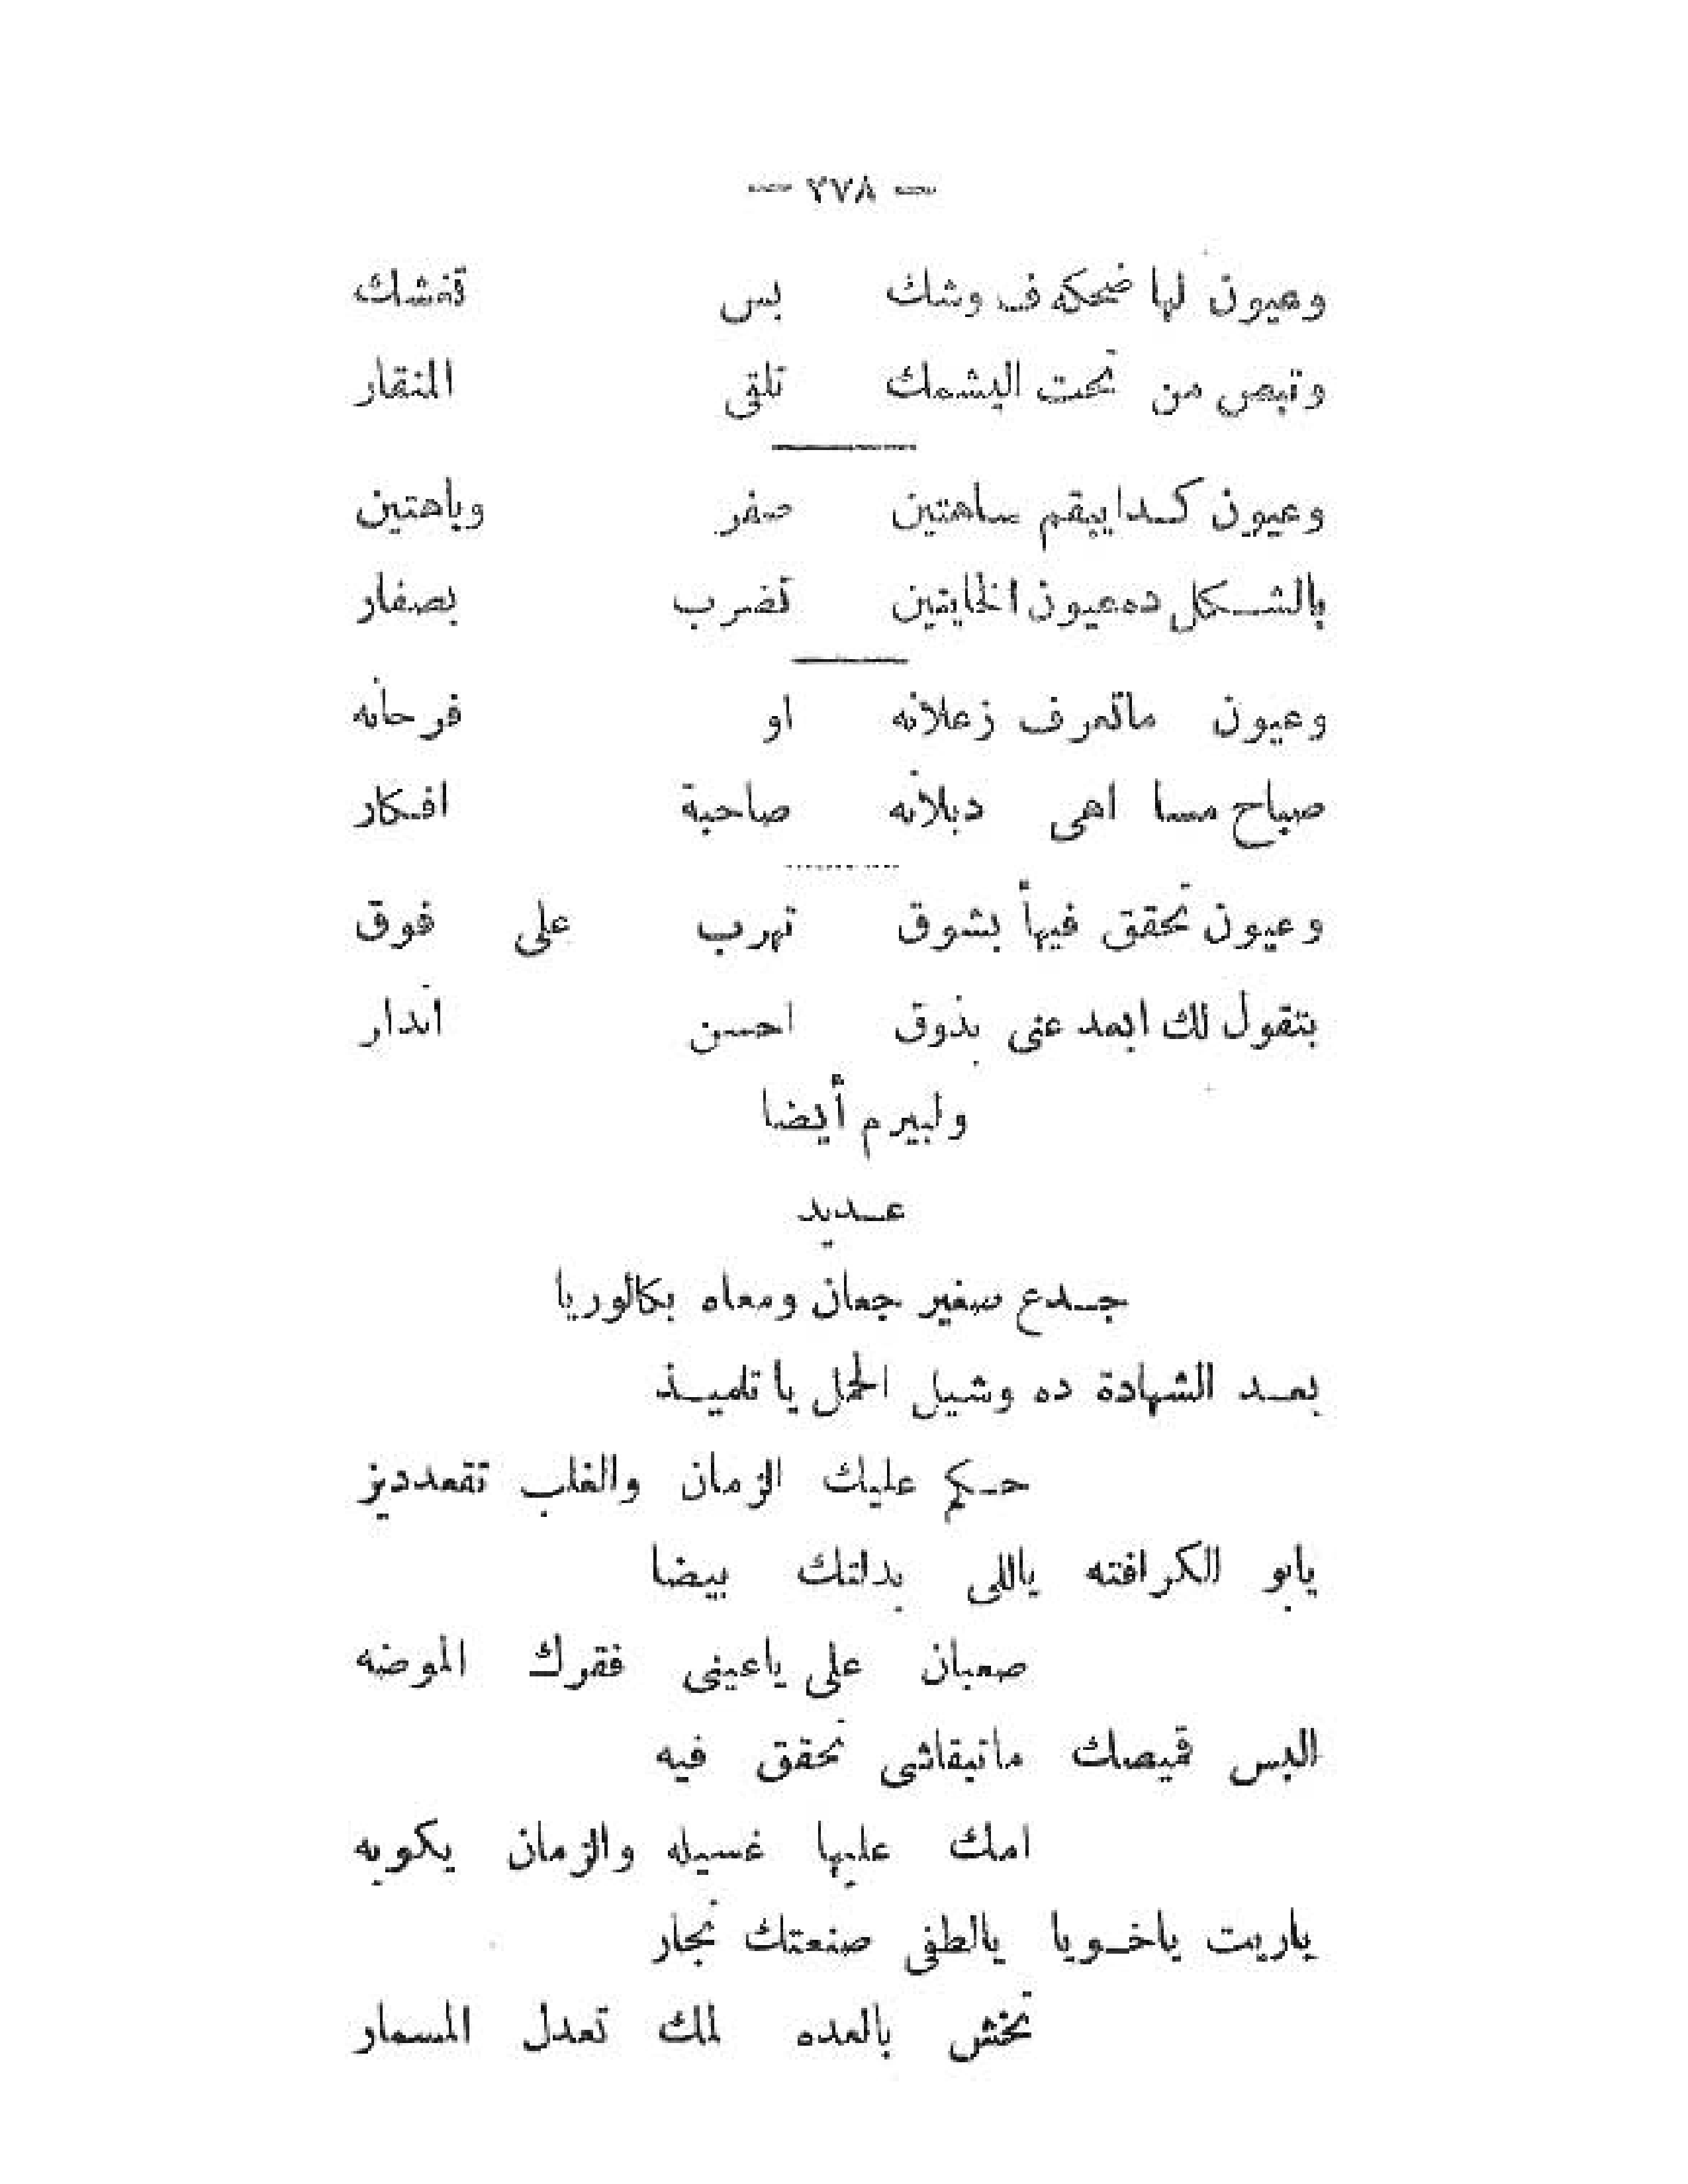 — ٢٧٨ —
وعيون لها ضحكه ف وشك بس تغشك
وتبص من تحت اليشمك تلقى المنقار
وعيون كدا يبقم ساهتين صفر وباهتين
بالشكل ده عيون الخاينين تضرب بصفار
وعيون ماتعرف زعلانه او فرحانه
صباح مسا اهى دبلانه صاحبة افكار
وعيون تحقق فيها بشوق تهرب على فوق
بتقول لك ابعد عنى بذوق احسن اندار
ولبيرم أيضا
عديد
جدع صغير جعان ومعاه بكالوريا
بعد الشهادة ده وشيل الحمل يا تلميذ
حكم عليك الزمان والغلب تقعد ديز
يابو الكرافته ياللى بدلتك بيضا
صعبان على ياعينى فقرك الموضه
البس قميصك ماتبقاشى تحقق فيه
امك عليها غسيله والزمان يكويه
ياريت ياخويا يالطفى صنعتك نجار
تخش بالعده لمك تعدل المسمار